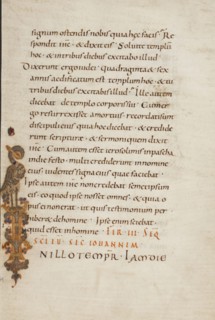 signum ostendis nobis quia hęc facis Re
spondit ihc · & dixit eis Soluite templū
hoc & in tribus diebus excitabo illud
Dixerunt ergo iudei Quadraginta & sex
annis aedificatum est templum hoc · & tu
tribus diebus excitabis illud · Ille autem
dicebat de templo corporis sui Cum er
go resurrexisset a mortuis · recordati sunt
discipuli eius quia hoc dicebat · & credide
runt scripturę · & sermoni quem dixit
ihc · Cum autem esset ierosolimis in pascha
in die festo · multi crediderunt in nomine
eius · uidentes signa eius quae faciebat ·
Ipse autem ihc non credebat semetipsum
eis · eo quod ipse nosset omnes · & quia o
pus ei non erat · ut quis testimonium per
hiberet de homine · Ipse enim sciebat
quid esset in homine · FER III SEQ
SCI EU SEC IOHANNEM
IN ILLO TEMPR · IAM DIE